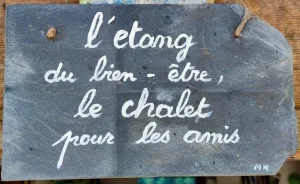 l'étang
du bien-être,
le chalet
pour les amis
MR